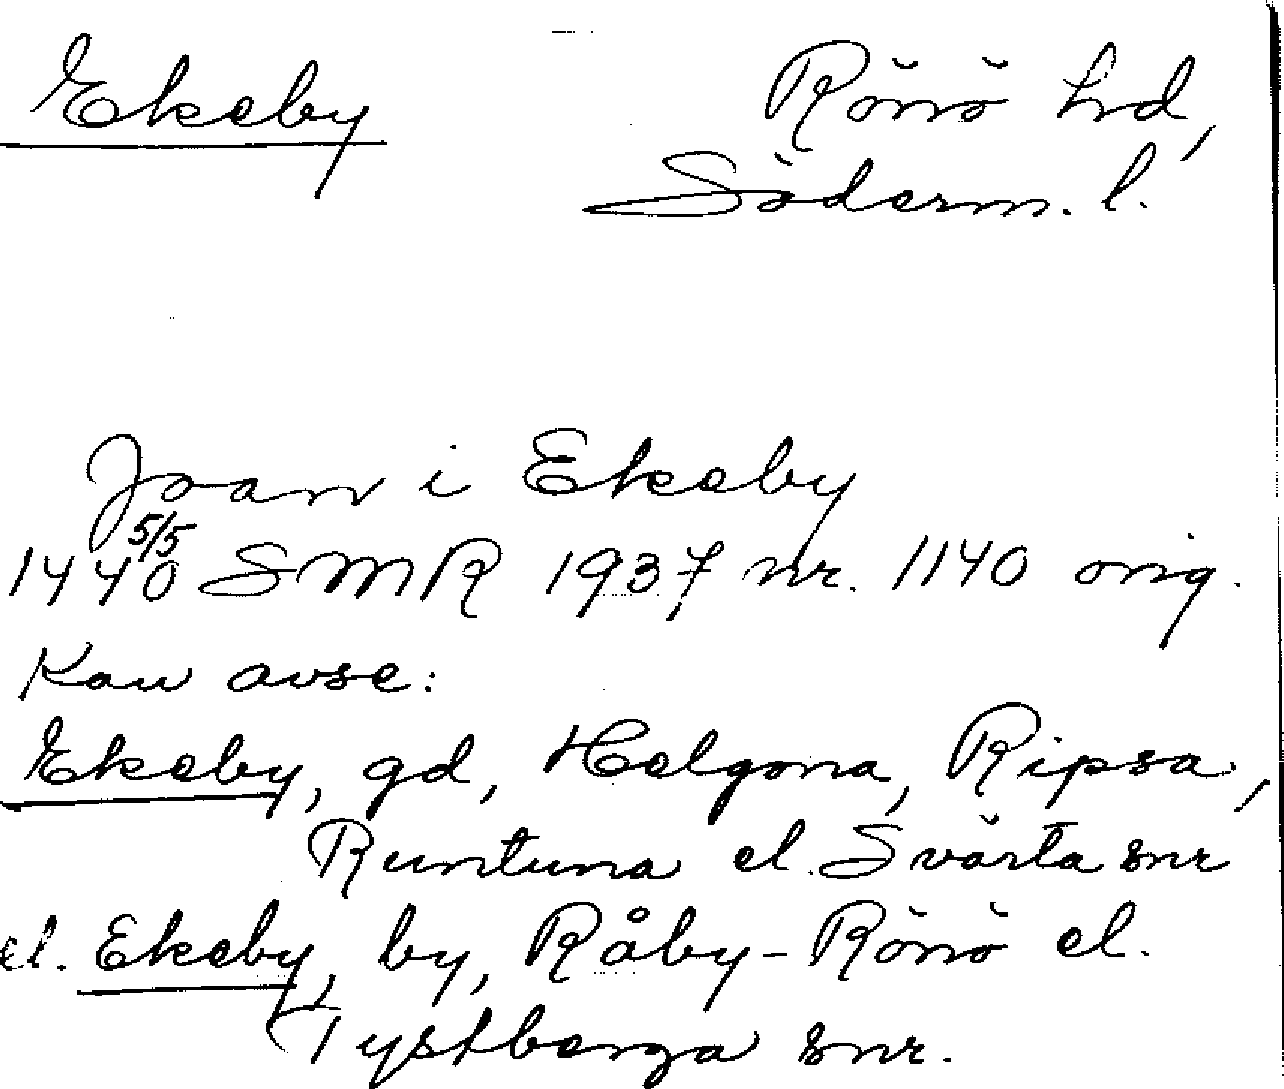 Ekeby
Rönö hd,
Söderm. l.
Joan i Ekeby
5/5
1440 SMR 1937 nr. 1140 orig.
Kan avse:
Ekeby, gd, Helgona, Ripsa,
Runtuna el. Svärta snr
el. Ekeby, by, Råby-Rönö el.
Tystberga snr.